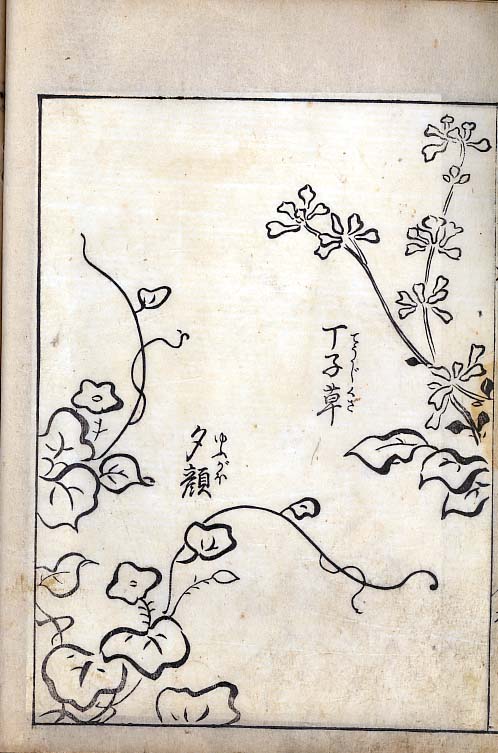 丁子草
てうじくさ
夕顔
ゆふがほ